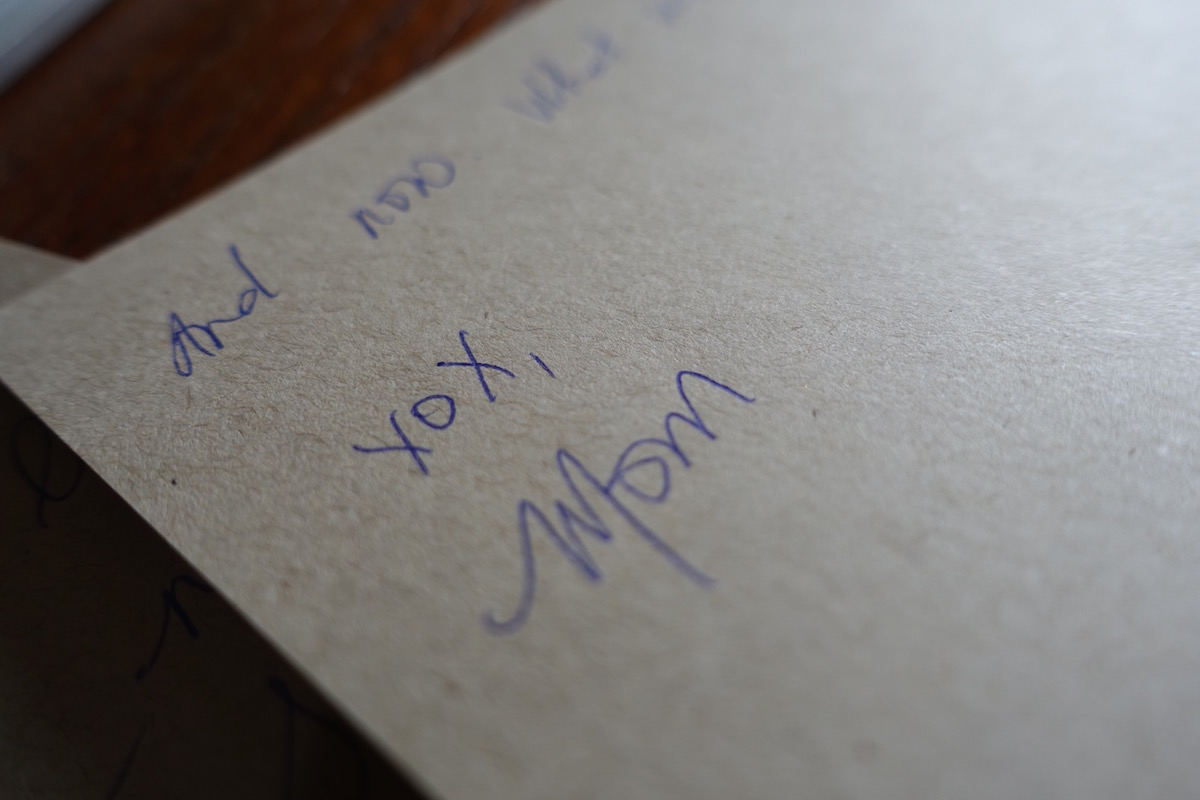 And now what
xox,
Mom